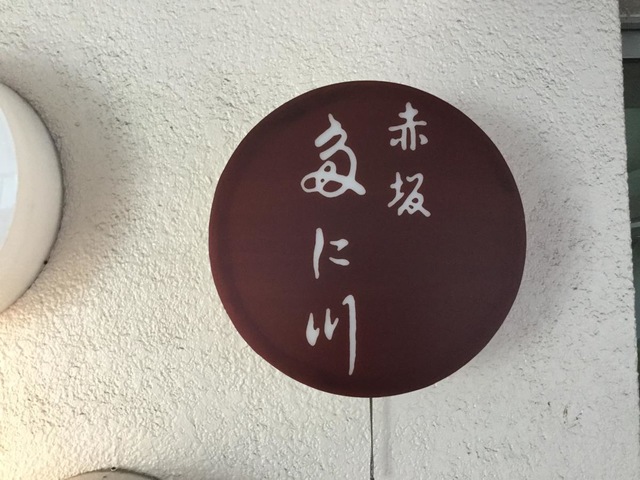 赤坂
多に川